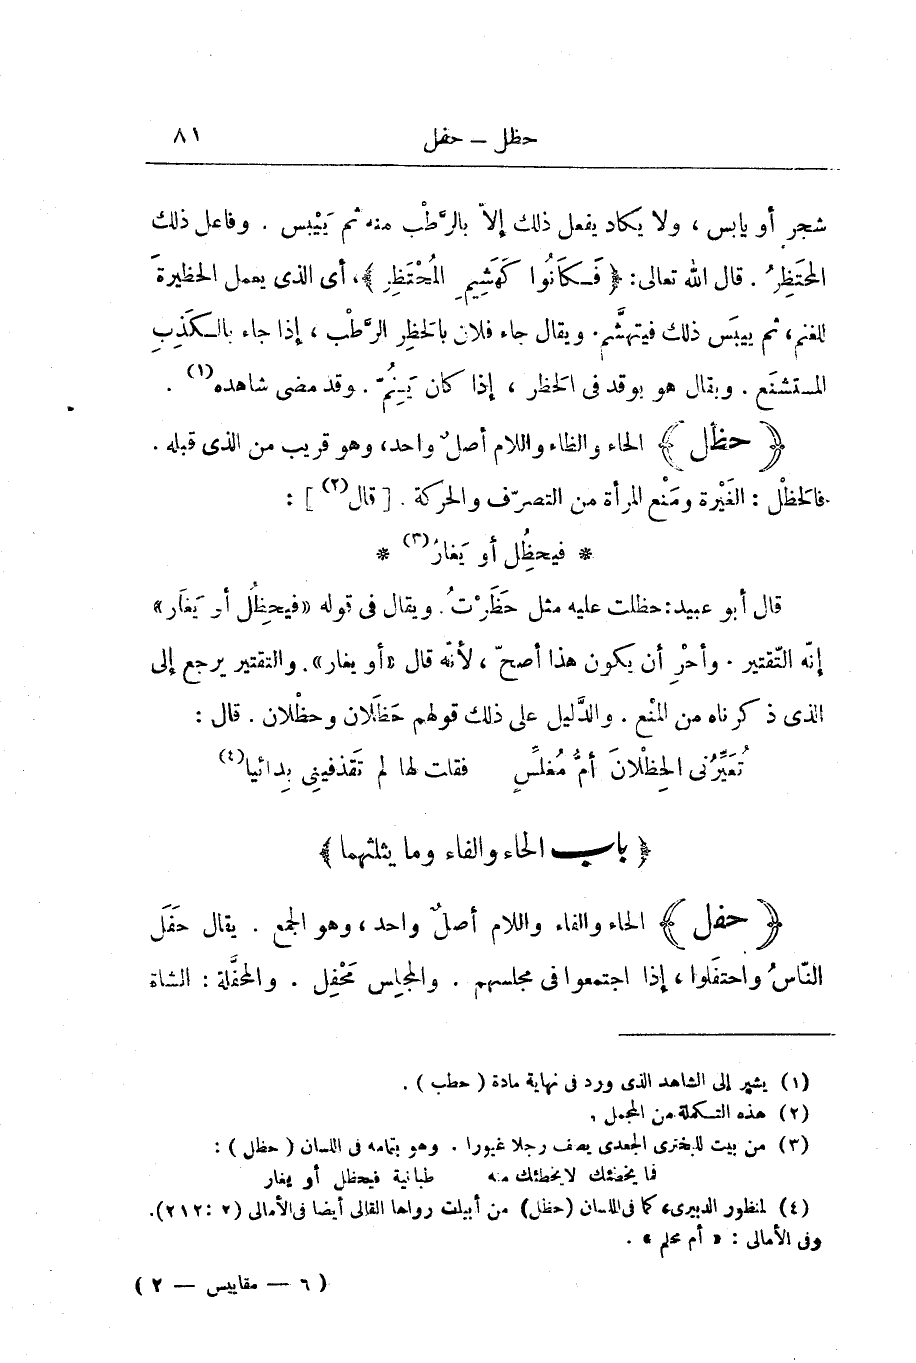 حظل — حفل ٨١
شجر أو يابس ، ولا يكاد يفعل ذلك إلاّ بالرَّطْب منه ثم يَيْبس . وفاعل ذلك
المحتَظِرُ . قال الله تعالى: ﴿ فَكَانُوا كَهَشِيمِ المُحْتَظِرِ ﴾، أى الذى يعمل الحظيرةَ
للغنم، ثم ييبَس ذلك فيتهشَّم. ويقال جاء فلان بالحظِر الرَّطْب ، إذا جاء بالكَذِبِ
المستشنَع . ويقال هو يوقد فى الحَظر ، إذا كان يَنِمُّ . وقد مضى شاهده(١) .
﴿ حظل ﴾ الحاء والظاء واللام أصلٌ واحد، وهو قريب من الذى قبله .
فالحَظْل : الغَيْرة ومَنْع المرأة من التصرّف والحركة . [ قال(٢) ] :
* فيحظُِل أو يَغارُ(٣) *
قال أبو عبيد: حظلت عليه مثل حَظَرْتُ. ويقال فى قوله «فيحظُِل أو يَغَار»
إنّه التّقتير . وأحْرِ أن يكون هذا أصحّ ، لأنّه قال «أو يغار». والتقتير يرجع إلى
الذى ذكرناه من المنْع . والدَّليل على ذلك قولهم حَظَلان وحظْلان . قال :
تُعَيِّرُنى الحِظْلانَ أمُّ مُغلِّسٍ فقلت لها لم تَقذفينِى بِدائيا(٤)
﴿ باب الحاء والفاء وما يثلثهما ﴾
﴿ حفل ﴾ الحاء والفاء واللام أصلٌ واحد ، وهو الجمع . يقال حَفَل
النّاسُ واحتفَلوا ، إذا اجتمعوا فى مجلسهم . والمجلِس مَحْفِل . والمحفَّلة : الشاة
(١) يشير إلى الشاهد الذى ورد فى نهاية مادة ( حطب ) .
(٢) هذه التكملة من المجمل .
(٣) من بيت للبخترى الجعدى يصف رجلا غيورا . وهو بتمامه فى اللسان ( حظل ) :
فما يخطئك لا يخطئك منه طبانية فيحظل أو يغار
(٤) لمنظور الدبيرى، كما فى اللسان (حظل) من أبيات رواها القالى أيضا فى الأمالى (٢ : ٢١٢).
وفى الأمالى : « أم محلم » .
( ٦ — مقاييس — ٢ )